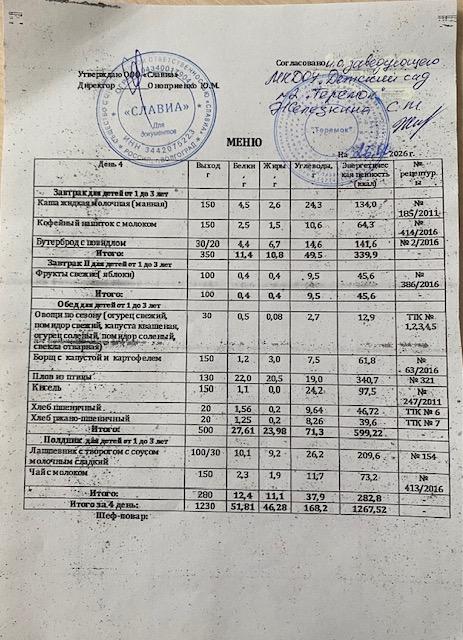 Утверждаю ООО «Славиа»
Директор Оноприенко Ю.М.
Согласовано и.о. заведующего
МКДОУ Детский сад
"Теремок"
С.М.
«СЛАВИА»
Для
документов
ИНН 3442075223
"Теремок"
МЕНЮ
На 2026 г.
День 4 Выход г Белки г Жиры г Углеводы, г Энергетическая ценность (ккал) № рецептуры
Завтрак для детей от 1 до 3 лет
Каша жидкая молочная (манная) 150 4,5 2,6 24,3 134,0 № 185/2011
Кофейный напиток с молоком 150 2,5 1,5 10,6 64,3 № 414/2016
Бутерброд с повидлом 30/20 4,4 6,7 14,6 141,6 № 2/2016
Итого: 350 11,4 10,8 49,5 339,9
Завтрак II для детей от 1 до 3 лет
Фрукты свежие( яблоки) 100 0,4 0,4 9,5 45,6 № 386/2016
Итого: 100 0,4 0,4 9,5 45,6
Обед для детей от 1 до 3 лет
Овощи по сезону (огурец свежий, 30 0,5 0,08 2,7 12,9 ТТК № 1,2,3,4,5
помидор свежий, капуста квашеная,
огурец соленый, помидор соленый,
свекла отварная)
Борщ с капустой и картофелем 150 1,2 3,0 7,5 61,8 № 63/2016
Плов из птицы 130 22,0 20,5 19,0 340,7 № 321
Кисель 150 1,1 0,0 24,2 97,5 № 247/2011
Хлеб пшеничный 20 1,56 0,2 9,64 46,72 ТТК № 6
Хлеб ржано-пшеничный 20 1,25 0,2 8,26 39,6 ТТК № 7
Итого: 500 27,61 23,98 71,3 599,22
Полдник для детей от 1 до 3 лет
Лапшевник с творогом с соусом 100/30 10,1 9,2 26,2 209,6 № 154
молочным сладкий
Чай с молоком 150 2,3 1,9 11,7 73,2 № 413/2016
Итого: 280 12,4 11,1 37,9 282,8
Итого за 4 день: 1230 51,81 46,28 168,2 1267,52 -
Шеф-повар: